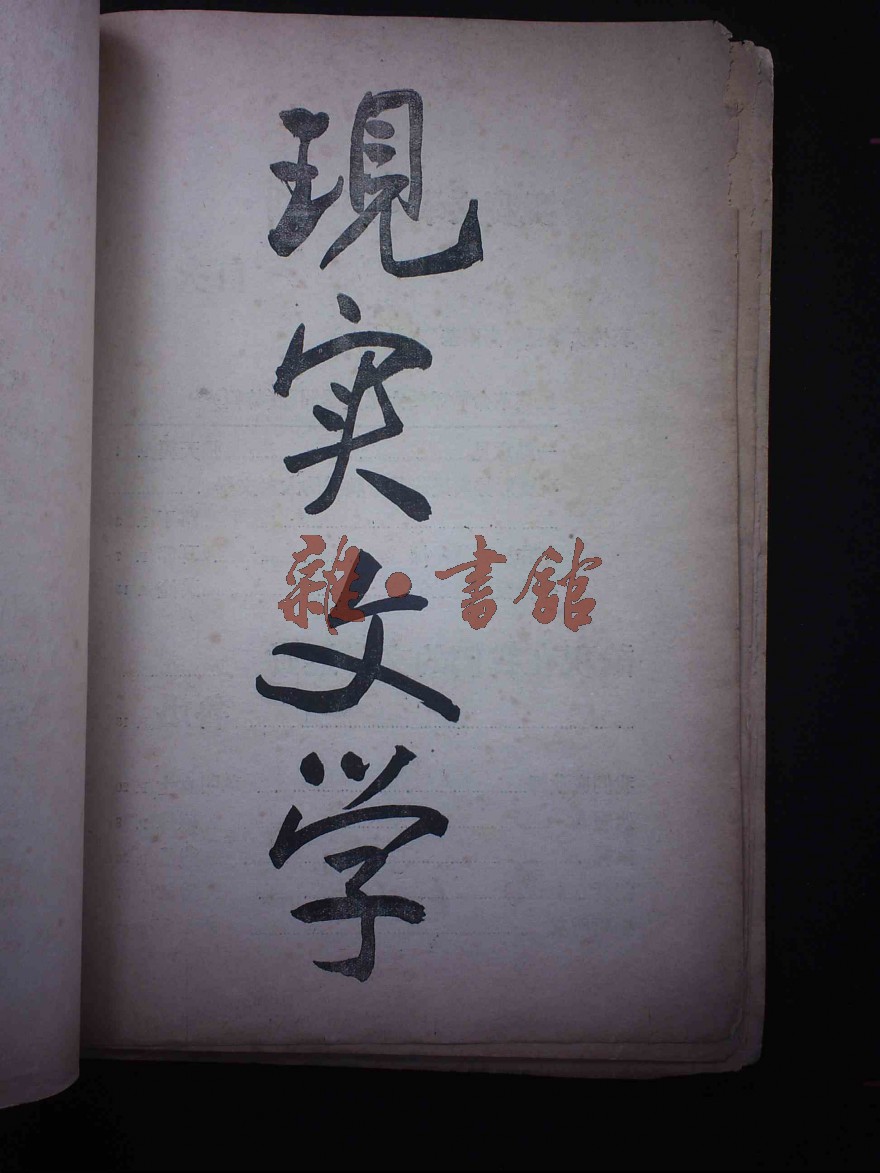 現实文学
雜·書舘